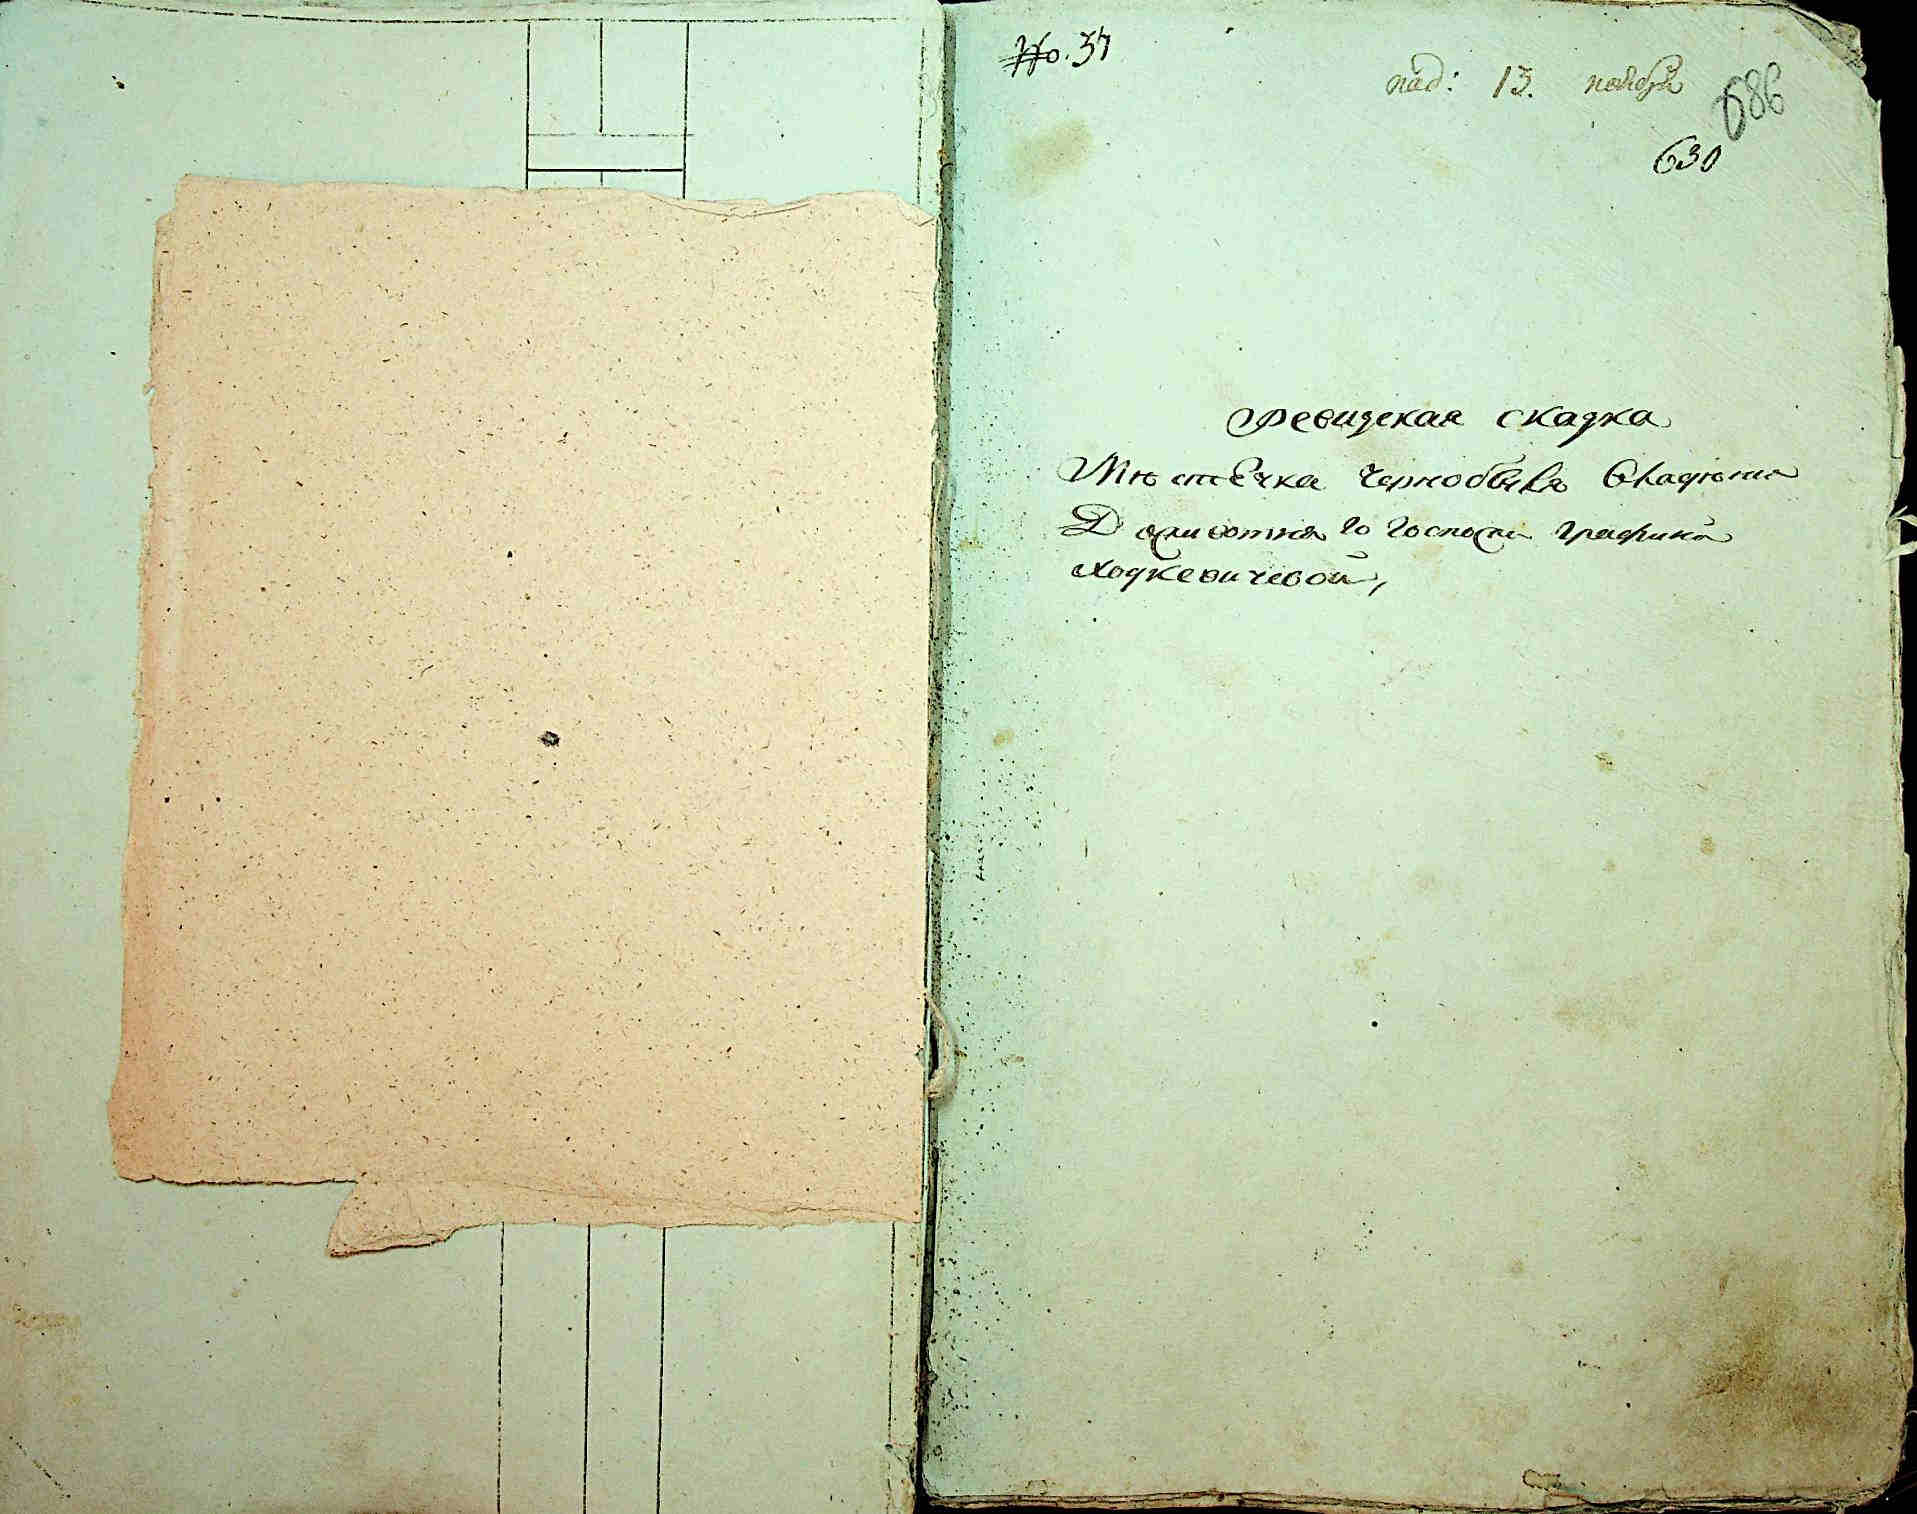 No. 37
под: 13. ноября
686
630
Ревизская сказка
Мѣстечка Чернобыля Владѣния
Дожывотняго Госпожи Графини
Ходкевичевой,